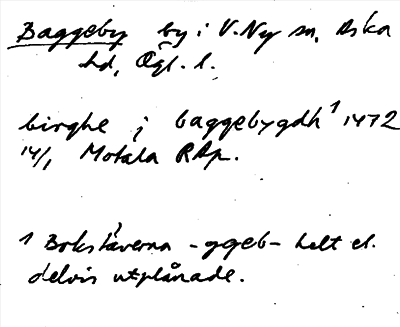 Baggeby by i V. Ny sn, Aska
hd, Ögl. l.
birghe j baggebygdh¹ 1472
14/1 Motala RAp.
¹ Bokstäverna -ggeb- helt el.
delvis utplånade.